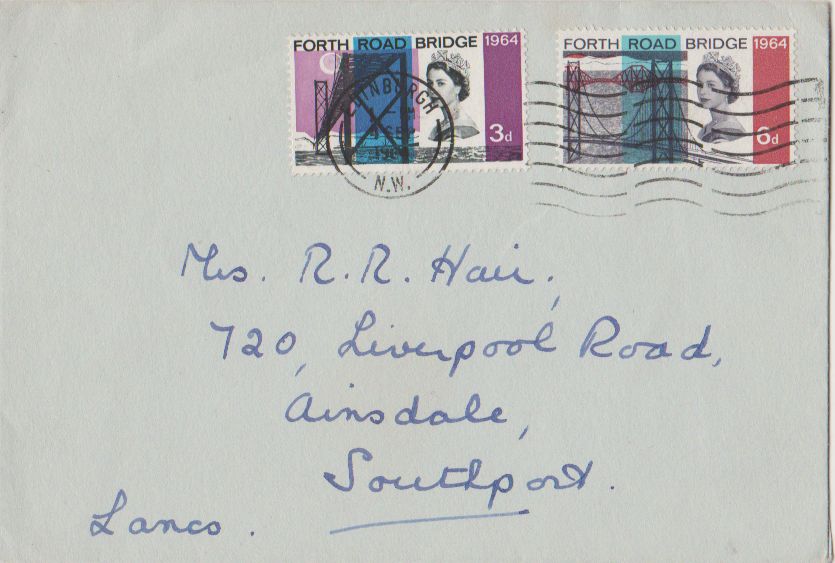 FORTH ROAD BRIDGE 1964
3d
FORTH ROAD BRIDGE 1964
6d
EDINBURGH
N.W.
Mrs. R. R. Hair,
720, Liverpool Road,
Ainsdale,
Southport.
Lancs.